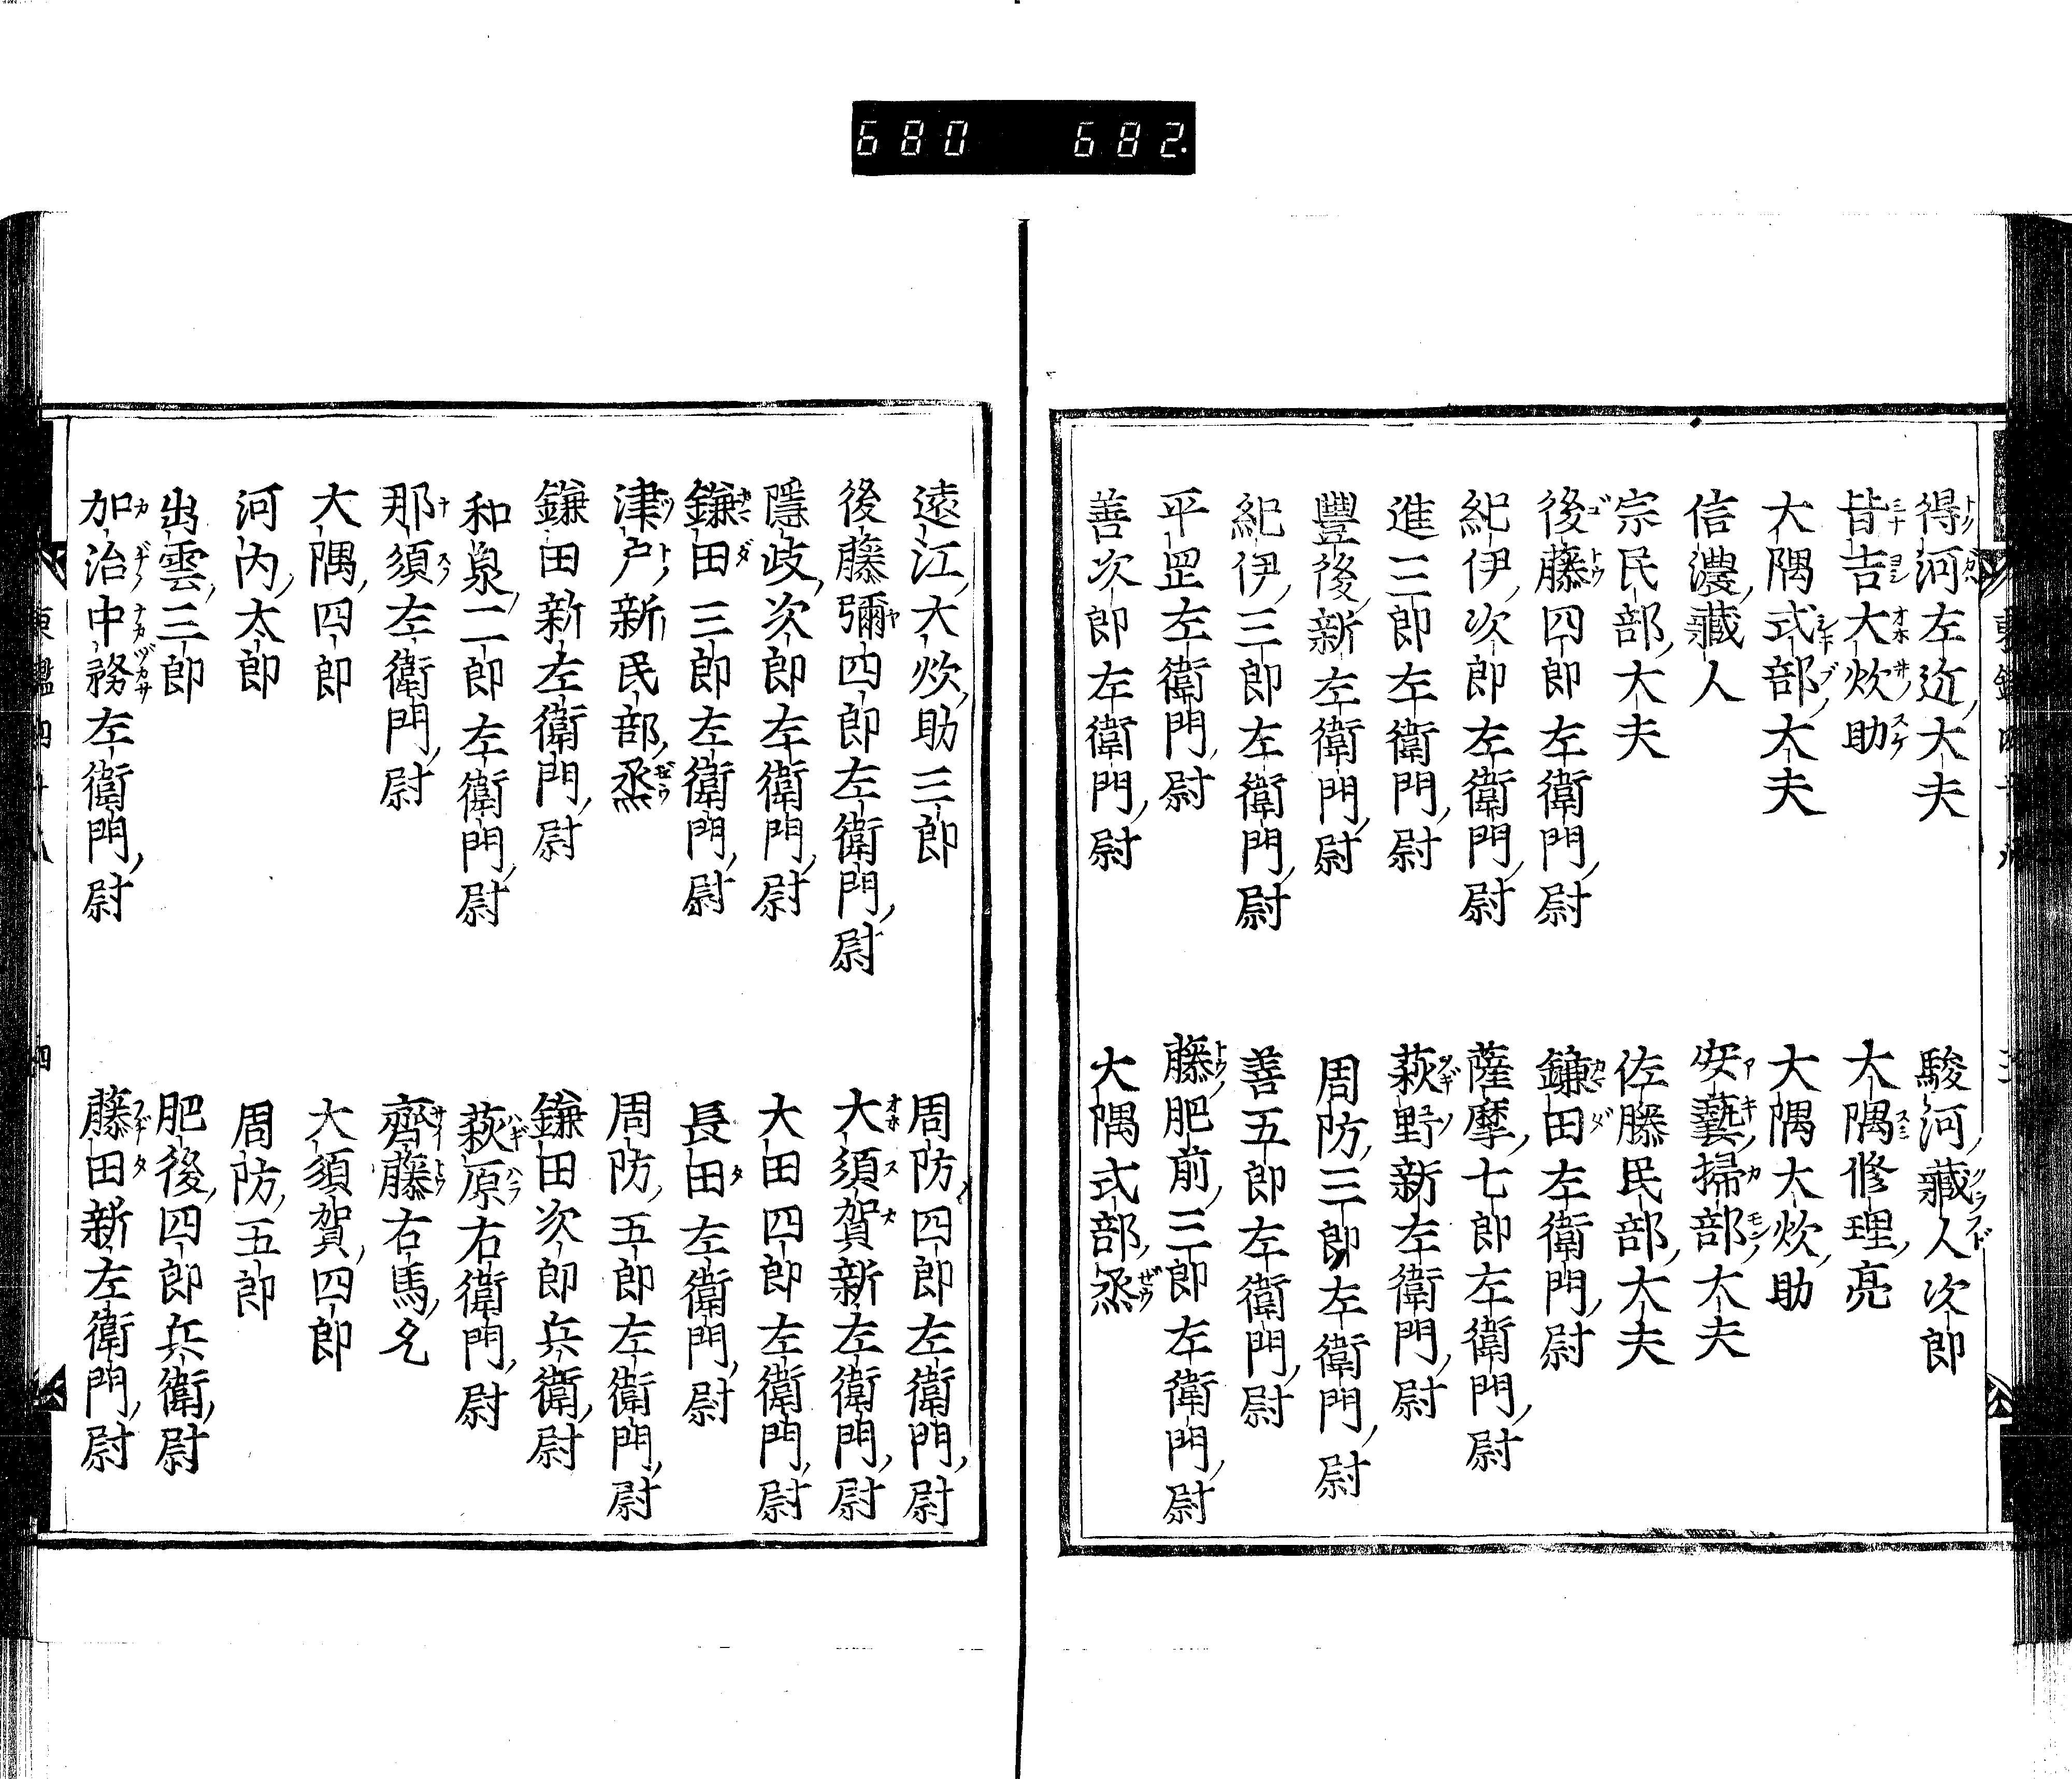 680 682
得河左近大夫 駿河藏人次郎
皆吉大炊助 大隅修理亮
大隅式部大夫 大隅大炊助
信濃藏人 安藝掃部大夫
宗民部大夫 佐藤民部大夫
後藤四郎左衛門尉 鎌田左衛門尉
紀伊次郎左衛門尉 薩摩七郎左衛門尉
進三郎左衛門尉 萩野新左衛門尉
豐後新左衛門尉 周防三郎左衛門尉
紀伊三郎左衛門尉 善五郎左衛門尉
平罡左衛門尉 藤肥前三郎左衛門尉
善次郎左衛門尉 大隅式部烝
遠江大炊助三郎 周防四郎左衛門尉
後藤彌四郎左衛門尉 大須賀新左衛門尉
隱岐次郎左衛門尉 大田四郎左衛門尉
鎌田三郎左衛門尉 長田左衛門尉
津戸新民部烝 周防五郎左衛門尉
鎌田新左衛門尉 鎌田次郎兵衛尉
和泉二郎左衛門尉 萩原右衛門尉
那須左衛門尉 齊藤右馬允
大隅四郎 大須賀四郎
河内太郎 周防五郎
出雲三郎 肥後四郎兵衛尉
加治中務左衛門尉 藤田新左衛門尉
四